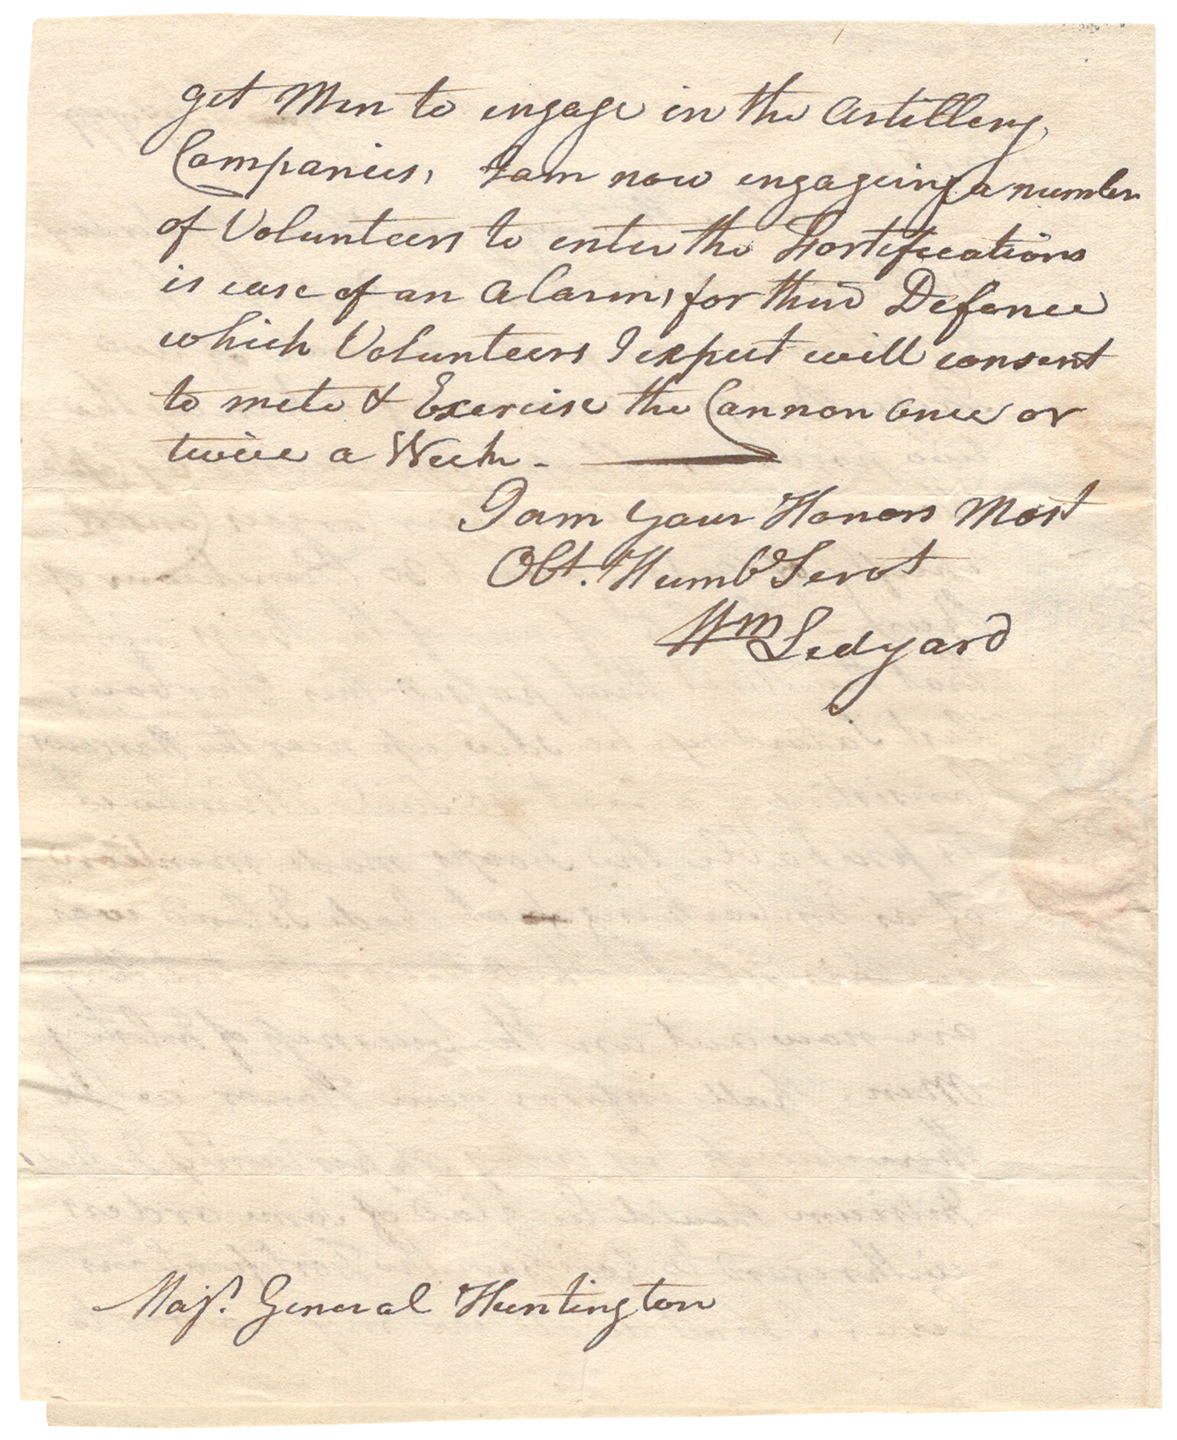 get Men to engage in the Artillery
Companies, I am now engageing a number
of Volunteers to enter the Fortifications
is case of an Alarm, for their Defence
which Volunteers I expect will consent
to mete & Exercise the Cannon once or
twice a Week. 
I am Your Honors Most
Obt. Humbe Servt
Wm Ledyard
Majr. General Huntington